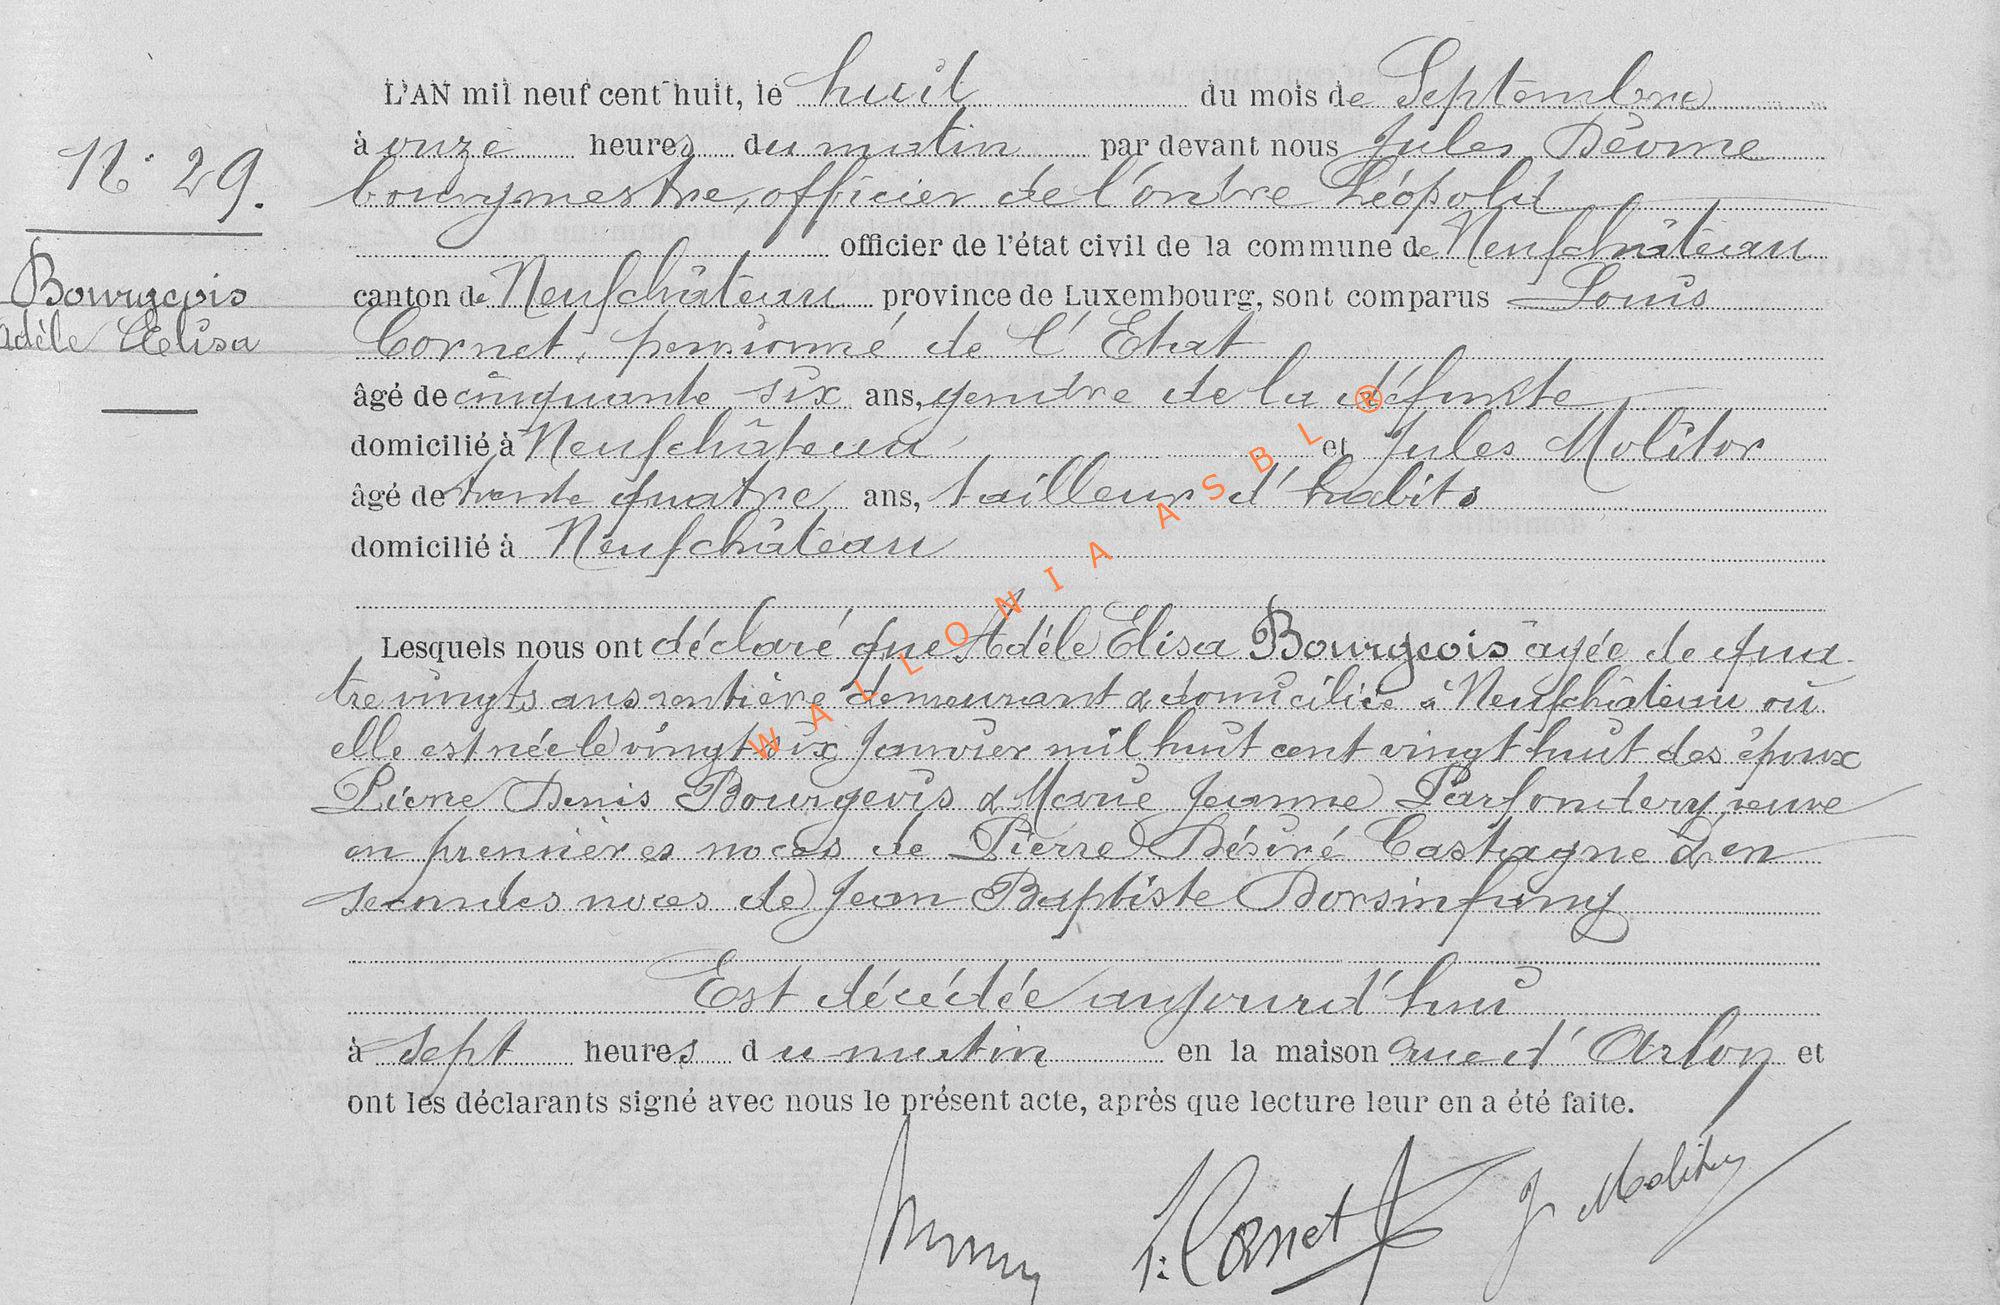 L'AN mil neuf cent huit, le huit du mois de Septembre
à onze heures du matin par devant nous Jules Déome
N° 29. bourgmestre, officier de l'ordre Léopold
officier de l'état civil de la commune de Neufchâteau
Bourgeois canton de Neufchâteau province de Luxembourg, sont comparus Louis
Adèle Elisa Cornet, pensionné de l'Etat
âgé de cinquante six ans, gendre de la défunte
domicilié à Neufchâteau et Jules Molitor
âgé de trente quatre ans, tailleur d'habits
domicilié à Neufchâteau
Lesquels nous ont déclaré que Adèle Elisa Bourgeois âgée de qua
tre vingts ans rentière demeurant & domiciliée à Neufchâteau où
elle est née le vingt six Janvier mil huit cent vingt huit des époux
Pierre Denis Bourgeois & Marie Jeanne Parfondery, veuve
en premières noces de Pierre Désiré Castagne & en
secondes noces de Jean Baptiste Dorsinfang
Est décédée aujourd'hui
à sept heures du matin en la maison rue d'Arlon et
ont les déclarants signé avec nous le présent acte, après que lecture leur en a été faite.
L. Cornet J Molitor
WALLONIA ASBL ®